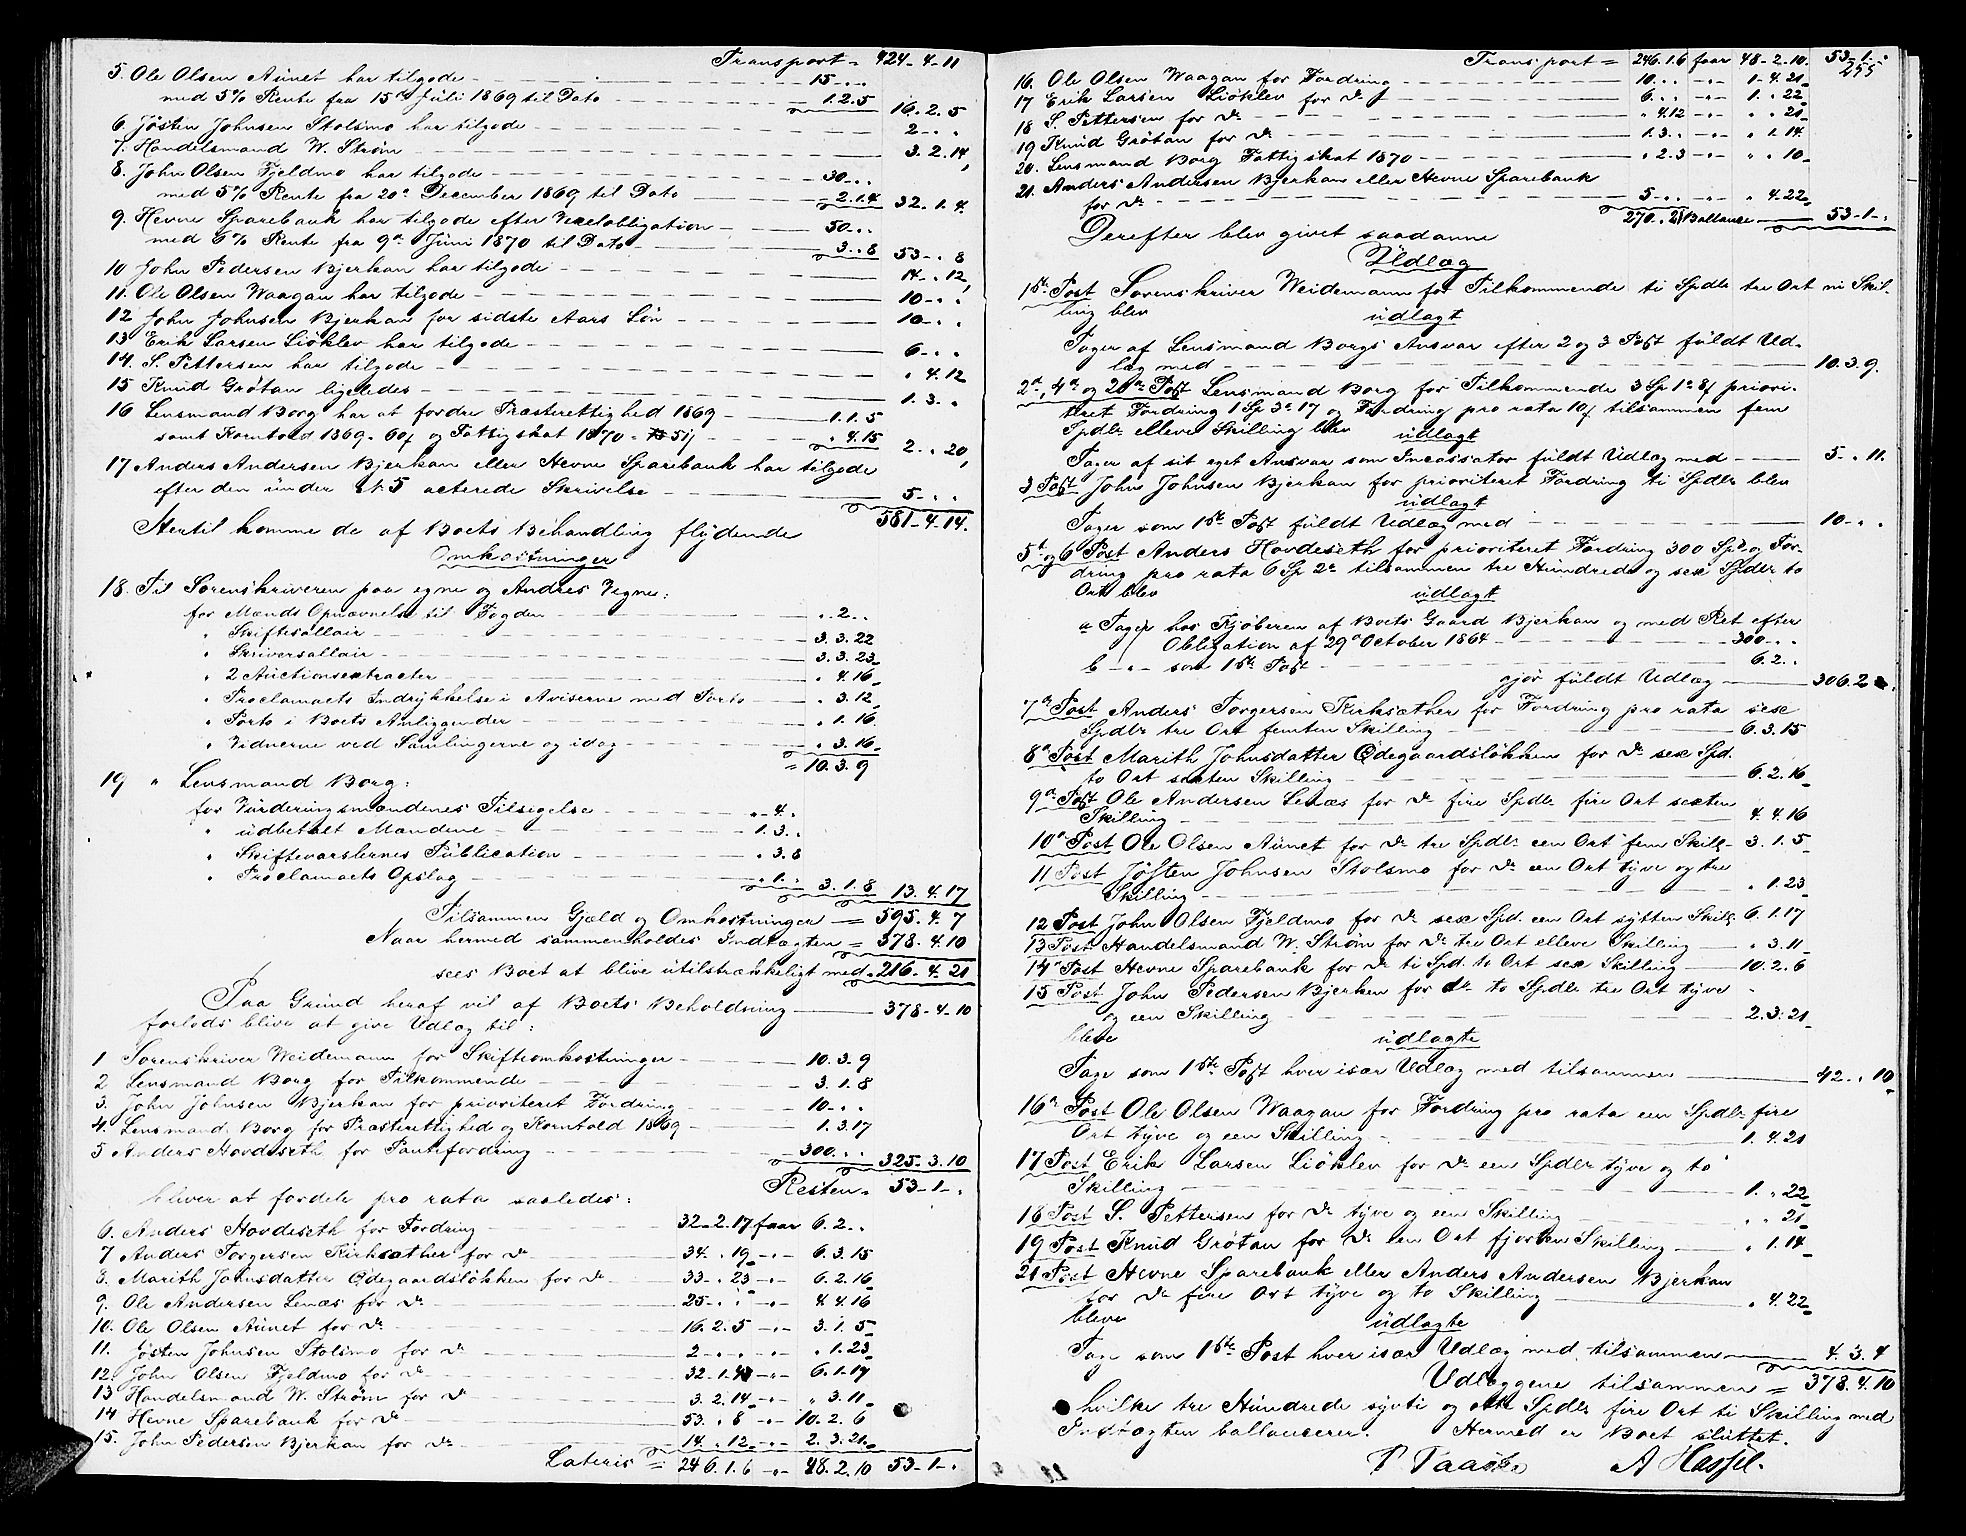 Transport = 424-4-11
5. Ole Olsen Aünet har tilgode - 15-..
med 5% Rente fra 15de Jüli 1869 til Dato - 1.2.5 16.2.5
6. Jøsten Johnsen Stolsmo har tilgode - 2-..
7. Handelsmand W. Strøm - 3.2.14
8. John Olsen Fjeldmo har tilgode - 30-..
med 5% Rente fra 20de December 1869 til Dato - 2.1.4 32.1.4.
9. Hevne Sparebank har tilgode efter Vexelobligation - 50-..
med 6% Rente fra 9de Jüni 1870 til Dato - 3..8 53-.8
10 John Pedersen Bjerkan har tilgode - 14-.12
11. Ole Olsen Waagan har tilgode - 10-..
12 John Johnsen Bjerkan for sidste Aars Løn - 10-..
13 Erik Larsen Liøklev har tilgode - 6-..
14. S. Pettersen har tilgode - . 4.12
15 Knüd Grøtan ligeledes - 1.3..
16 Lensmand Borg har at fordre Præsterettighed 1869 - 1.1.5
samt Korntold 1869. 60ß og Fattigskat 1870 - 51ß - . 4.15 2-.20
17 Anders Andersen Bjerkan eller Hevne Sparebank har tilgode
efter den ünder N. 5 acterede Skrivelse - 5-..
581-4.14.
Hertil komme de af Boets Behandling flydende
Omkostninger
18. Til Sorenskriveren paa egne og Andres Vegne:
for Mænds Opnævnelse til Fogden - . 2..
" Skiftesallair - 3.3.22
" Skriversallair - 3.3.23
" 2 Auctionsextracter - . 4.16
" Proclamaets Indrykkelse i Aviserne med Porto - . 3.12
" Porto i Boets Anliggender - . 1.16.
" Vidnerne ved Samlingerne og idag - . 3.16
= 10.3.9
19 " Lensmand Borg:
for Vürderingsmændenes Tilsigelse - . 4.
" üdbetalt Mændene - 1.3.
" Skiftevarslernes Püblication - . 3.8
" Proclamaets Opslag - . 1.. 3.1.8 13.4.17
Tilsammen Gjæld og Omkostninger = 595.4.7
Naar hermed sammenholdes Indtægten = 378.4.10
sees Boet at blive ütilstrækkeligt med = 216-4.21
Paa Gründ heraf vil af Boets Beholdning - 378-4-10
forlods blive at give Udlæg til:
1 Sorenskriver Weidemann for Skifteomkostninger - 10.3.9
2 Lensmand Borg for Tilkommende - 3.1.8
3. John Johnsen Bjerkan for prioriteret Fordring - 10-..
4. Lensmand Borg for Præsterettighed og Korntold 1869 - 1.3.17
5 Anders Hovdeseth for Pantefordring - 300... 325-3.10
Resten = 53-1-.
bliver at fordele pro rata saaledes:
6. Anders Hovdeseth for Fordring 32-2.17 faar 6.2..
7 Anders Torgersen Kirksæther for do 34. . 19 -"- 6.3.15
8. Marith Johnsdatter Ødegaardsløkken for do 33-. 23 -"- 6.2.16
9. Ole Andersen Lenæs for do 25-. . -"- 4.4.16
10. Ole Olsen Aünet for do 16.2.5 -"- 3.1.5
11. Jøsten Johnsen Stolsmo for do 2-. . -"- . 1.23
12. John Olsen Fjeldmo for do 32.1.4 -"- 6.1.17
13 Handelsmand W. Strøm for do 3.2.14 -"- . 3.11
14 Hevne Sparebank for do 53. . 8 -"- 10.2.6
15. John Pedersen Bjerkan for do 14. . 12 -"- 2.3.21
Lateris = 246.1.6 -"- 48.2.10 53-1-.
Transport = 246.1.6 faar 48-2-10. 53-1-.
255
16. Ole Olsen Waagan for Fordring - 10... -"- 1-4.21
17 Erik Larsen Liøklev for do - 6... -"- 1. . 22
18 S Pettersen for do - . 4.12 -"- . . 21
19 Knüd Grøtan for do - 1.3.. -"- . 1.14.
20. Lensmand Borg Fattigskat 1870 - . 2.3 -"- . . 10
21. Anders Andersen Bjerkan eller Hevne Sparebank
for do - 5-.. -"- . 4.22
270..21 Ballance - 53-1-.
Derefter blev givet saadanne
Üdlæg
1ste Post Sorenskriver Weidemann for Tilkommende ti Spdlr tre Ort ni Skil-
ling blev üdlagt
Tager af Lensmand Borgs Ansvar efter 2 og 3 Post füldt Ud-
læg med - 10.3.9.
2den, 4de og 20de Post Lensmand Borg for Tilkommende 3 Sp 1 o 8ß priori-
teret Fordring 1 Sp 3 o 17 og Fordring pro rata 10ß tilsammen fem
Spdlr elleve Skilling blev üdlagt
Tager af sit eget Ansvar som Incassator füldt Udlæg med - 5-.11.
3 Post John Johnsen Bjerkan for prioriteret Fordring ti Spdlr blev
üdlagt
Tager som 1ste Post füldt Udlæg med - 10-..
5te og 6 Post Anders Hovdeseth for prioriteret Fordring 300 Spd og For-
dring pro rata 6 Sp 2 o tilsammen tre Hündrede og sex Spdlr to
Ort blev üdlagt
a Tager hos Kjøberen af Boets Gaard Bjerkan og med Ret efter
Obligation af 29de October 1864 - 300-..
b -"- som 1ste Post - 6.2..
gjør füldt Udlæg - 306.2.
7de Post Anders Torgersen Kirksæther for Fordring pro rata sex
Spdlr tre Ort femten Skilling - 6.3.15
8de Post Marith Johnsdatter Ødegaardsløkken for do sex Spd.
to Ort sexten Skilling - 6.2.16
9de Post Ole Andersen Lenæs for do fire Spdlr fire Ort sexten
Skilling - 4.4.16
10de Post Ole Olsen Aünet for do tre Spdlr een Ort fem Skill - 3.1.5
11 Post Jøsten Johnsen Stolsmo for do een Ort tyve og tre
Skilling - . 1.23
12 Post John Olsen Fjeldmo for do sex Spd. een Ort sytten Skill 6.1.17
13 Post Handelsmand W. Strøm for do tre Ort elleve Skilling - . 3.11
14de Post Hevne Sparebank for do ti Spd to Ort sex Skilling - 10.2.6
15 Post John Pedersen Bjerken for do to Spdlr tre Ort tyve
og een Skilling - 2.3.21
bleve üdlagte
Tage som 1ste Post hver især Udlæg med tilsammen - 42. . 10
16de Post Ole Olsen Waagan for Fordring pro rata een Spdlr fire
Ort tyve og een Skilling - 1.4.21
17 Post Erik Larsen Liøklev for do een Spdlr tyve og to
Skilling - 1. . 22
18 Post S. Pettersen for do tyve og een Skilling . . 21
19 Post Knüd Grøtan for do een Ort fjorten Skilling - . 1.14
21 Post Hevne Sparebank eller Anders Andersen Bjerkan
for do fire Ort tyve og to Skilling - . 4.22
bleve üdlagte
Tage som 1ste Post hver især Udlæg med tilsammen - 4.3.4
Udlæggene tilsammen = 378.4.10
hvilke tre Hündrede syvti og otte Spdlr fire Ort ti Skilling med
Indtægten ballancerer. Hermed er Boet slüttet.
A Hassel.